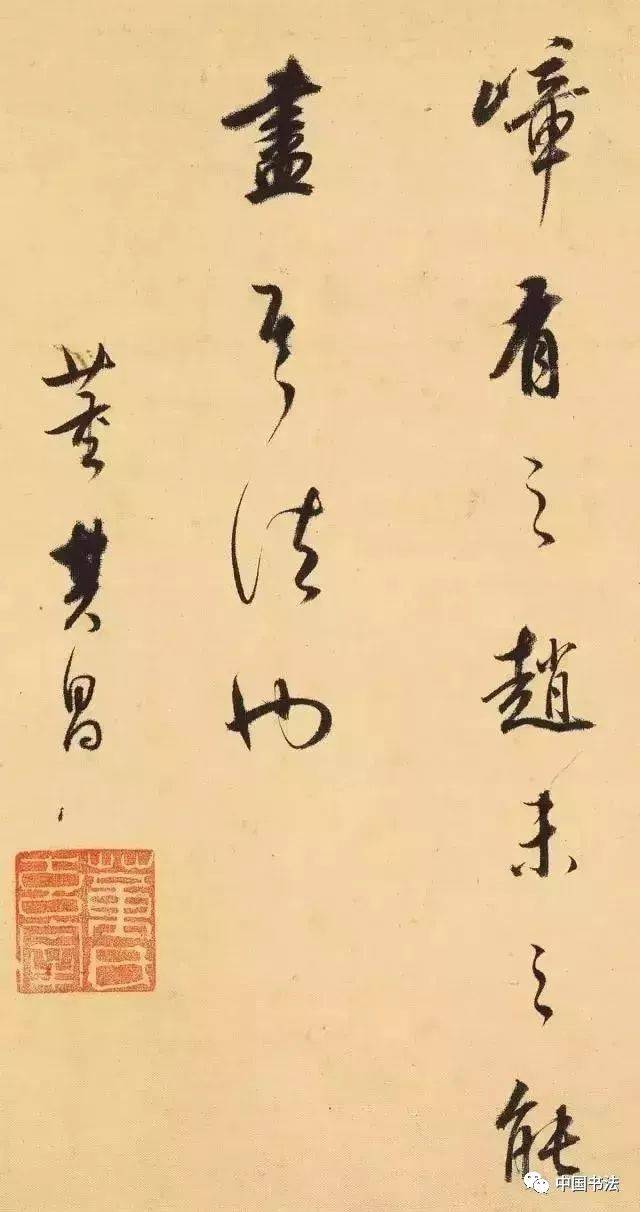 嶂有之趙未之能
盡其法也
董其昌
董氏玄宰
中国书法